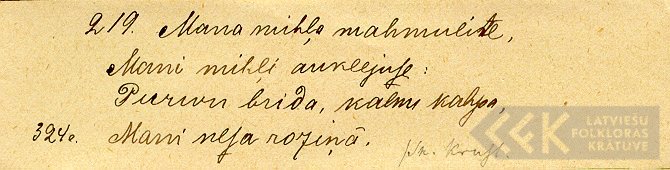 219. Mana mihļa mahmulite,
Mani mihļi auklejuse:
Purwu brida, kalnu kahpa,
324e. Mani nesa roziņā.
LATVIEŠU
FOLKLORAS
KRĀTUVE